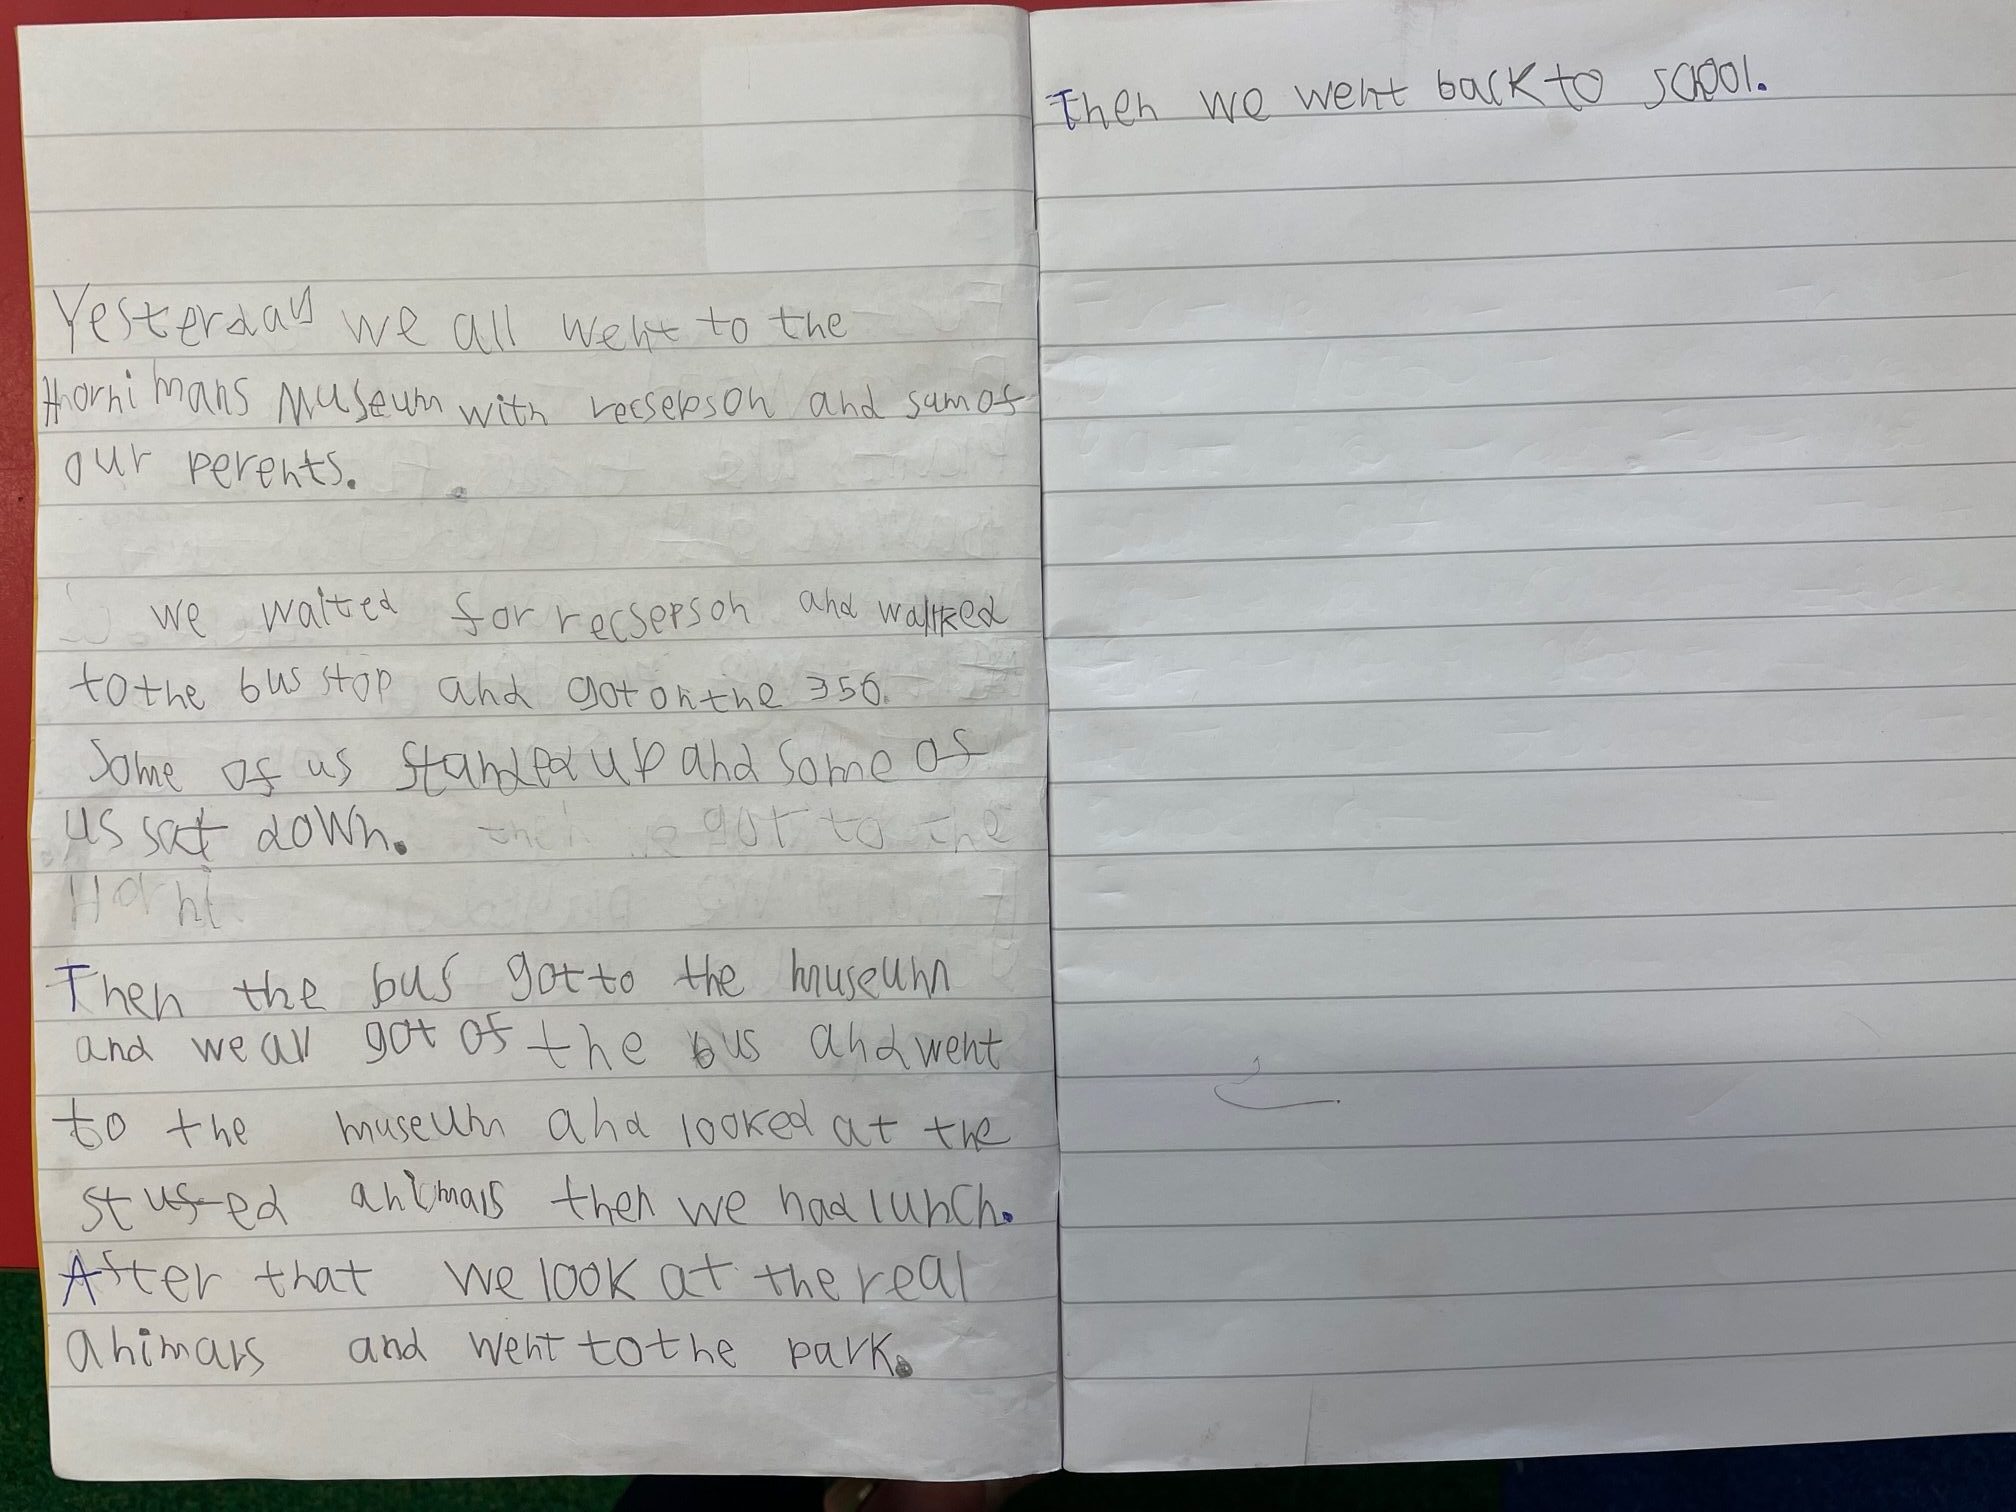 Yesterday we all went to the
Hornimans Museum with recsepson and sum of
our perents.
we waited for recsepson and walked
to the bus stop and got on the 356.
Some of us standed up and some of
us sat down. then we got to the
Horni
Then the bus got to the museum
and we all got of the bus and went
to the museum and looked at the
stufed animals then we had lunch.
After that we look at the real
animals and went to the park.
Then we went back to scool.